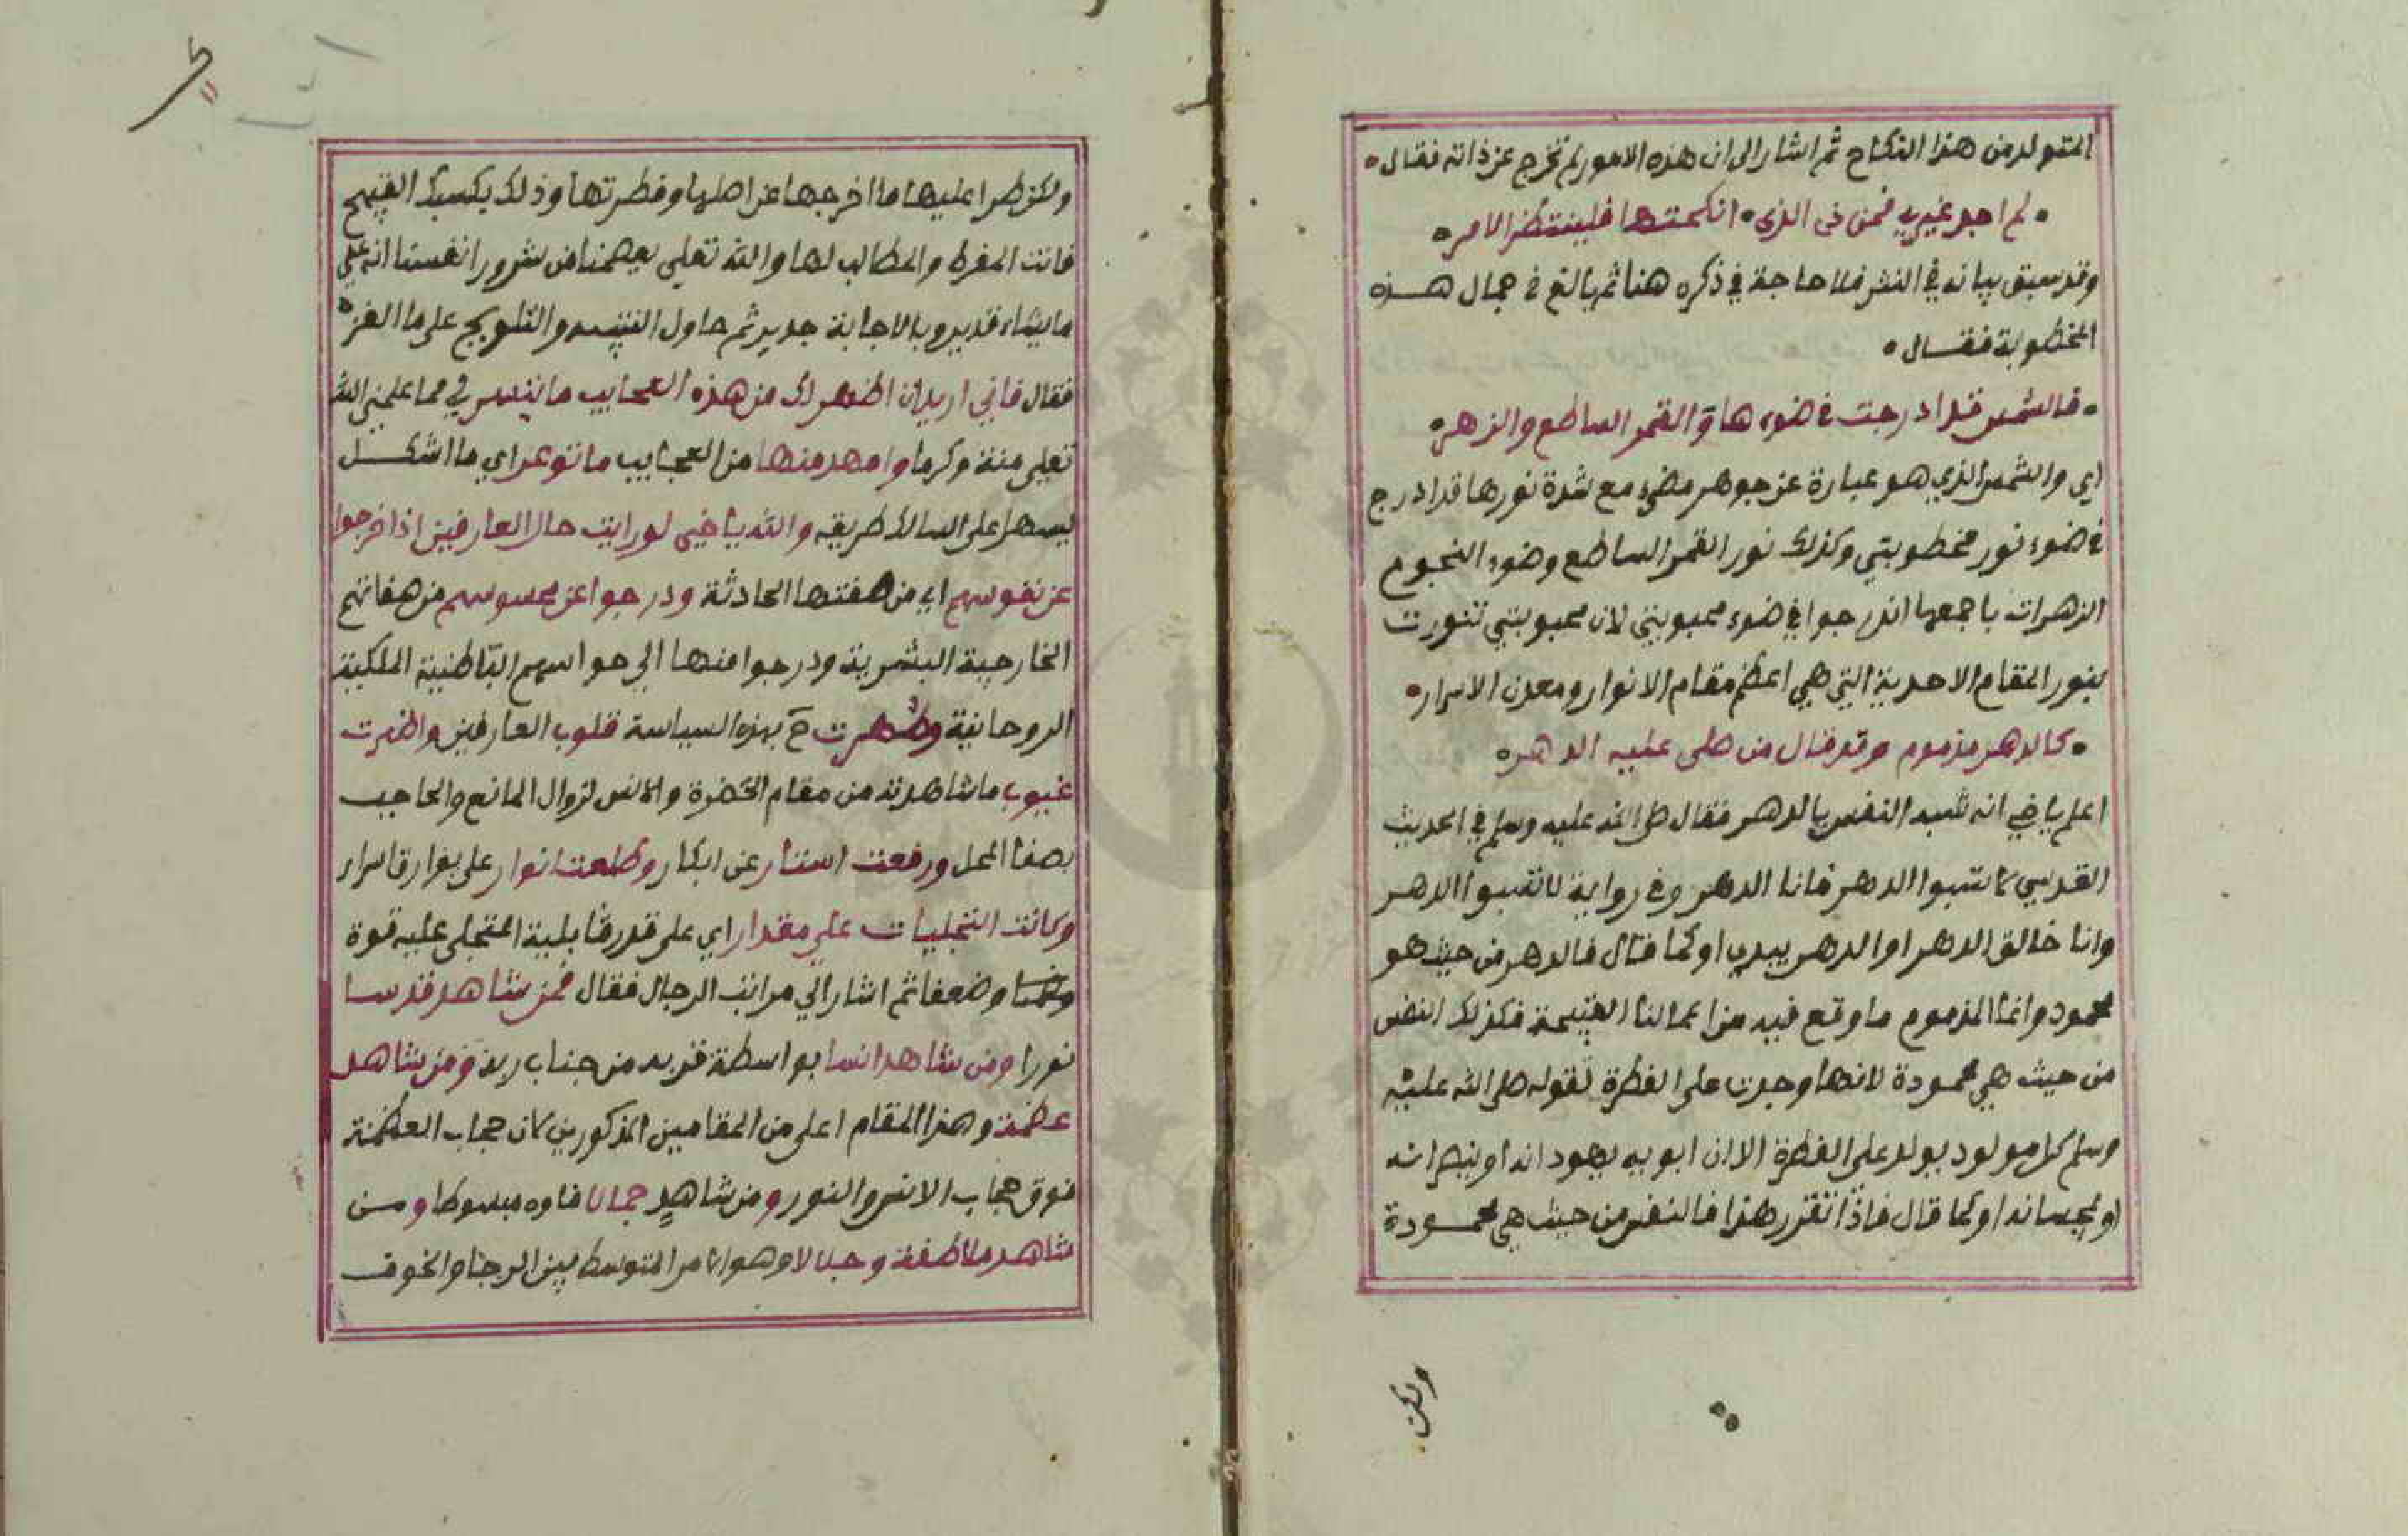 المتولد من هذا النكاح ثم اشار الى ان هذه الامور لم تخرج عن ذاته فقال
لم اجد غيري فمن ذى الذي انكحتها فلينتظر الامر
وقد سبق بيانه في النثر فلا حاجة في ذكره هنا ثم بالغ في جمال هذه
المخطوبة فقال
فالشمس قد ادرجت في ضوءها والقمر الساطع والزهر
اي والشمس الذي هو عبارة عن جوهر مضيء مع شدة نورها قد ادرج
في ضوء نور مخطوبتي وكذلك نور القمر الساطع وضوء النجوم
الزهرات باجمعها اندرجوا في ضوء محبوبتي لان محبوبتي تنورت
بنور المقام الاحدية التي هي اعظم مقام الانوار ومعدن الاسرار
كالدهر مذموم وقد قال من صلى عليه الدهر
اعلم ياخي انه شبه النفس بالدهر فقال صلى الله عليه وسلم في الحديث
القدسي لا تسبوا الدهر فانا الدهر وفي رواية لا تسبوا الدهر
وانا خالق الدهر او الدهر بيدي او كما قال فالدهر من حيث هو
محمود وانما المذموم ما وقع فيه من اعمالنا القبيحة فكذلك النفس
من حيث هي محمودة لانها وجدت على الفطرة لقوله صلى الله عليه
وسلم كل مولود يولد على الفطرة الا ان ابويه يهودانه او ينصرانه
او يمجسانه او كما قال فاذا تقرر هذا فالنفس من حيث هي محمودة
ولكن
ولكن طرا عليها ما اخرجها عن اصلها وفطرتها وذلك بكسبك القبيح
فانت المفرط والمطالب لها والله تعلى يعصمنا من شرور انفسنا انه على
ما يشاء قدير وبالاجابة جدير ثم حاول التنبيه والتلويح على ما الغزه
فقال فاني اريد ان اظهر لك من هذه العجايب ما تيسر لي مما علمني الله
تعلى منة وكرما وامهد منها من العجايب ما توعر اي ما اشكل
ليسهل على السالك طريقه والله ياخي لو رايت حال العارفين اذا خرجوا
عن نفوسهم اي من صفتها الحادثة ودرجوا عن محسوسهم من صفاتهم
الخارجية البشرية ودرجوا منها الى حواسهم الباطنية الملكية
الروحانية وطهرت ح بهذه السياسة قلوب العارفين واظهرت
غيوب ما شاهدته من مقام الحضرة والانس لزوال المانع والحاجب
بصفا المحل ورفعت استار عن ابكار وطلعت انوار على بوارق اسرار
وكانت التجليات على مقدار اي على قدر قابلية المتجلى عليه قوة
وضعفا ثم اشار الى مراتب الرجال فقال فمن شاهد قدسا
نورا ومن شاهد انسا بواسطة قربه من جناب ربه ومن شاهد
عظمة وهذا المقام اعلى من المقامين المذكورين لان حجاب العظمة
فوق حجاب الانس والنور ومن شاهد جمالا فاوه مبسوطا ومن
شاهد ملاطفة وجلالا وهو الامر المتوسط بين الرجا والخوف